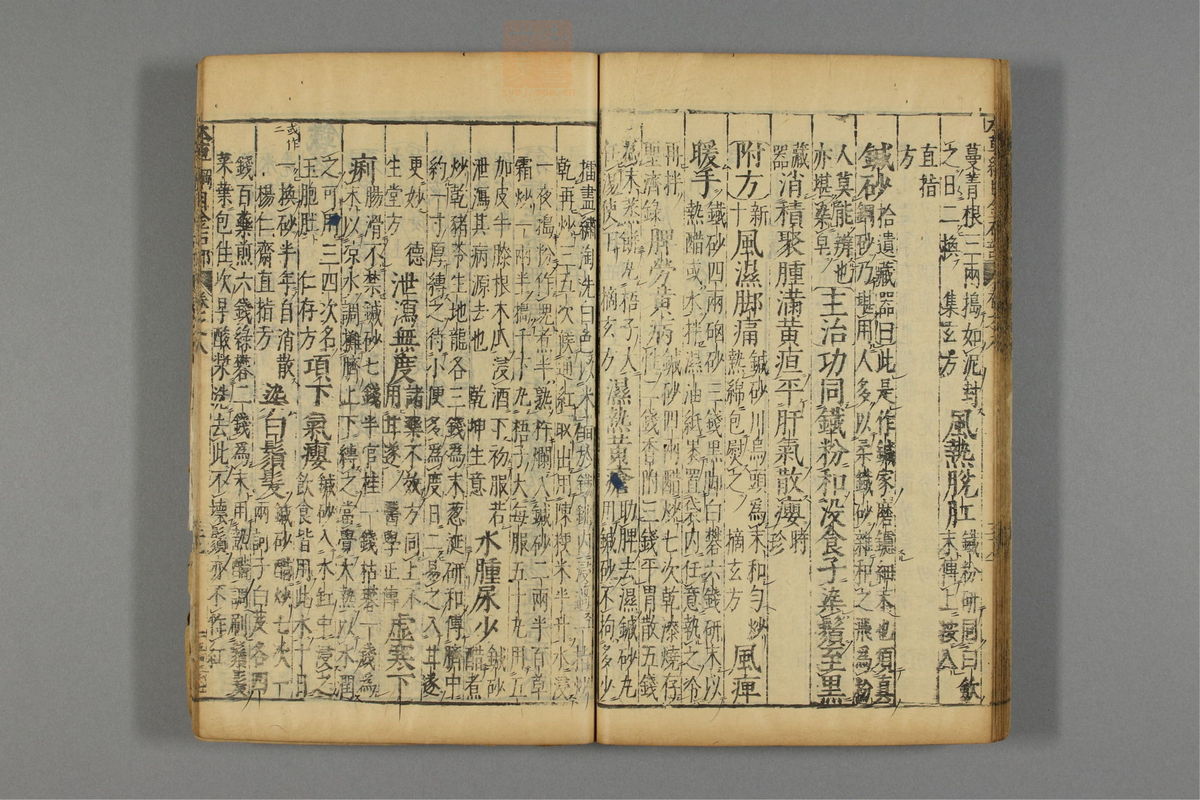 蔓菁根三兩搗如泥封
之日二換 集玄方 風熱脫肛 鐵粉研同白歛
末傅上按入
直指
方
鍼砂 拾遺藏器曰此是作鍼家磨鑢細末也須真
鋼砂乃堪用人多以柔鐵砂雜和之飛為粉
人莫能辨也
亦堪染皂 主治功同鐵粉和沒食子染鬚至黑
藏
器 消積聚腫滿黃疸平肝氣散癭 時
珍
附方 新
十 風濕脚痛 鍼砂川烏頭為末和勻炒
熱綿包熨之 摘玄方 風痺
暖手 鐵砂四兩硇砂三錢黑脚白礬六錢研末以
熱醋或水拌濕油紙裹置袋內任意執之冷
再拌
聖濟錄 脾勞黃病 鍼砂四兩醋炒七次乾漆燒存
性二錢香附三錢平胃散五錢
為末蒸餅丸梧子大
任湯使下 摘玄方 濕熱黃瘡 助脾去濕鍼砂丸
用鍼砂不拘多少
擂盡鏽淘洗白色以米醋於鐵銚內浸過一
乾再炒三五次候通紅取出用陳粳米半升水浸
一夜搗粉作塊煮半熟杵爛入鍼砂二兩半百草
霜炒一兩半搗千下丸梧子大每服五十丸用五
加皮半膝根木瓜浸酒下初服若
泄瀉其病源去也 乾坤生意 水腫尿少 鍼砂
醋煮
炒乾豬苓生地龍各三錢為末葱涎研和傅臍中
約一寸厚縛之待小便多為度日二易之入甘遂
更妙 德
生堂方 泄瀉無度 諸藥不效方同上不
用甘遂 醫學正傳 虛寒下
痢 腸滑不禁鍼砂七錢半官桂一錢枯礬一錢為
末以凉水調攤臍上下縛之當覺大熱以水潤
之可用三四次名
玉胞肚 仁存方 項下氣癭 鍼砂入水缸中浸之
飲食皆用此水十日
一換砂半年自消散
楊仁齋直指方 染白鬚髮 鍼砂醋炒七次一
兩訶子白芨各四
錢百藥煎六錢綠礬二錢為末用熱醋調刷鬚髮
菜葉包住次早酸漿洗去此不壞鬚亦不作紅
或作
三